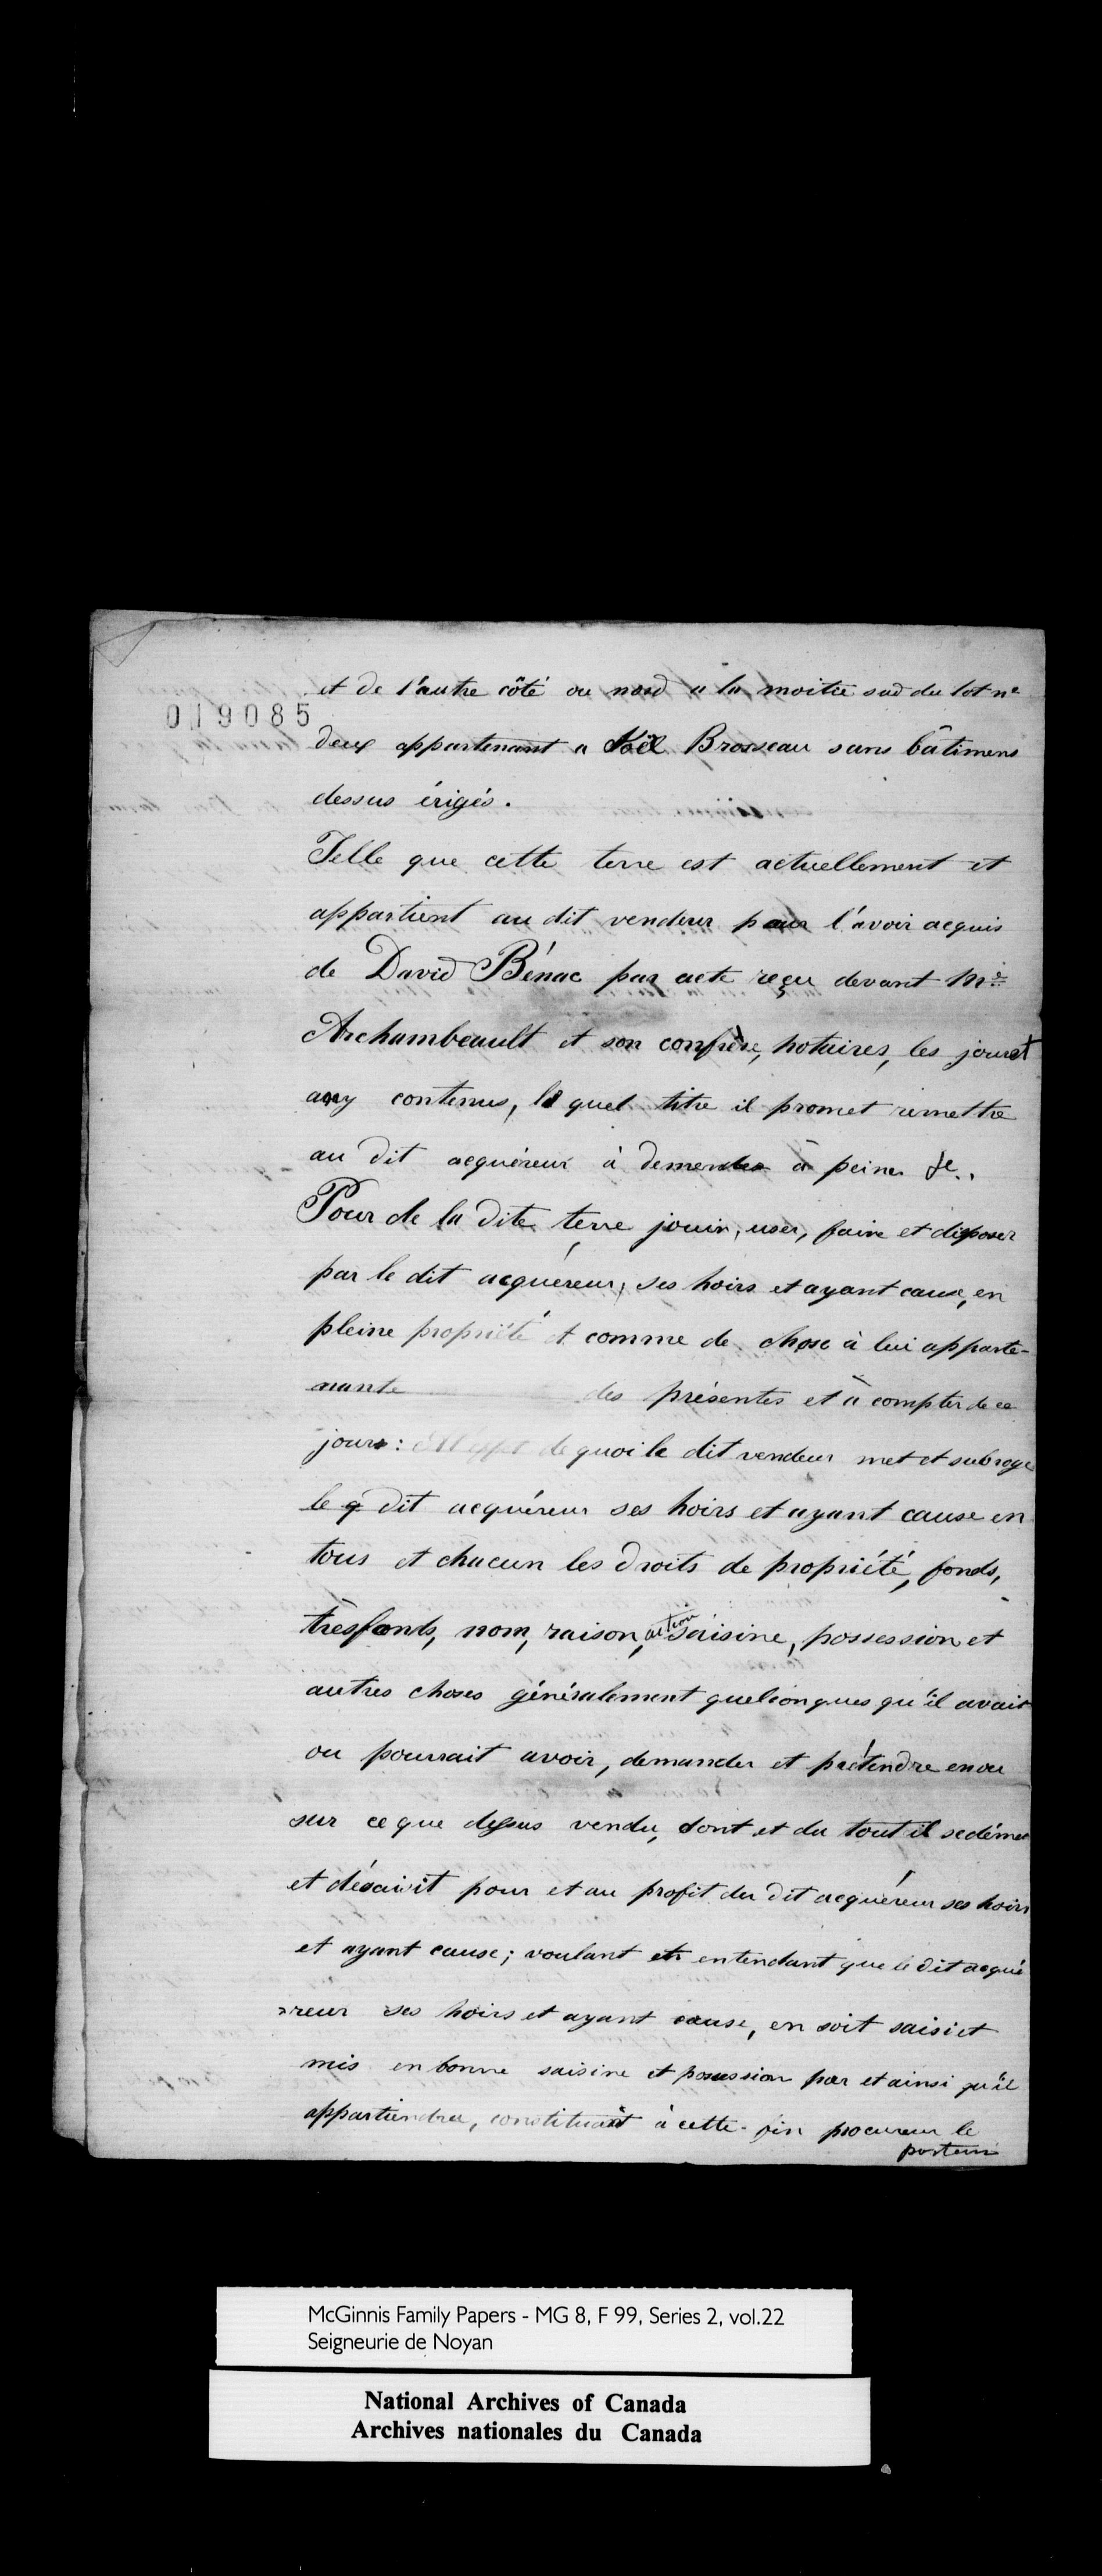 et de l'autre côté ou nord à la moitié sud du lot nº
019085
deux appartenant a Noël Brosseau sans bâtimens
dessus érigés.
Telle que cette terre est actuellement et
appartient au dit vendeur pour l'avoir acquis
de David Bénac par acte reçu devant Mtre
Archambeault et son confrère, notaires, les jour et
an y contenus, le quel titre il promet remettre
au dit acquéreur à demander à peine &c.
Pour de la dite terre jouir, user, faire et disposer
par le dit acquéreur, ses hoirs et ayant cause, en
pleine propriété et comme de chose à lui apparte-
nante des présentes et à compter de ce
jour: de quoi le dit vendeur met et subroge
le dit acquéreur ses hoirs et ayant cause en
tous et chacun les droits de propriété, fonds,
trèsfonds, nom, raison, action saisine, possession et
autres choses généralement quelconques qu'il avait
ou pourrait avoir, demander et prétendre en ou
sur ce que dessus vendu, dont et du tout il se démet
et désaisit pour et au profit du dit acquéreur ses hoirs
et ayant cause; voulant et entendant que le dit acqué
=reur ses hoirs et ayant cause, en soit saisi et
mis en bonne saisine et possession par et ainsi qu'il
appartiendra, constituant à cette fin procureur le
porteur
McGinnis Family Papers - MG 8, F 99, Series 2, vol.22
Seigneurie de Noyan
National Archives of Canada
Archives nationales du Canada